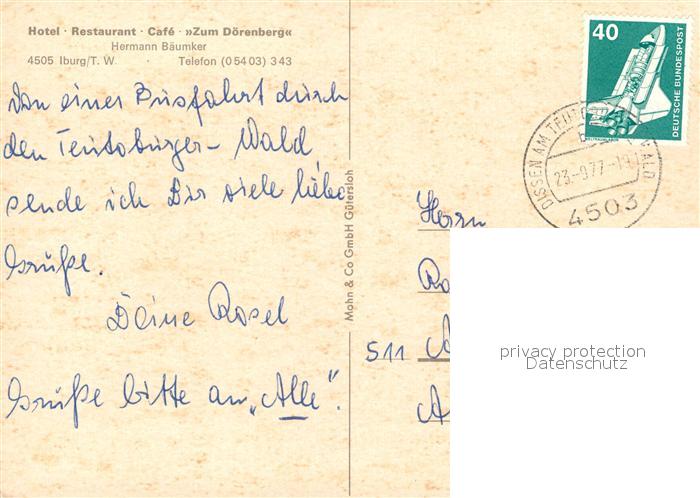 Hotel · Restaurant · Café · »Zum Dörenberg«
Hermann Bäumker
4505 Iburg/T. W. · Telefon (0 54 03) 3 43
Von einer Busfahrt durch
den Teutoburger-Wald
sende ich Dir viele liebe
Grüße.
Deine Rosel
Grüße bitte an „Alle".
Mohn & Co GmbH Gütersloh
40
DEUTSCHE BUNDESPOST
DISSEN AM TEUTO WALD
23.-9.77.-19
4503
Herrn
Ro
511 A
A
privacy protection
Datenschutz